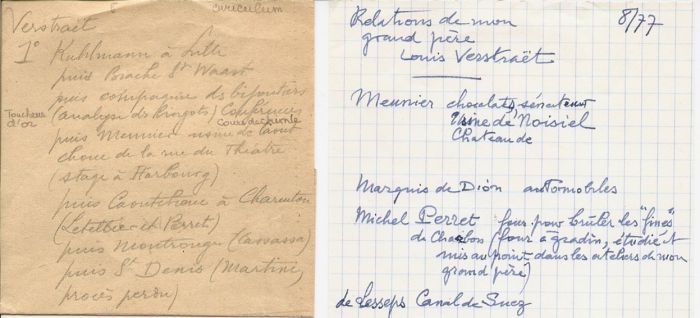 curiculum
Verstraët
1° Kuhlmann à Lille
puis Biache St Waast
puis compagnie des bijoutiers
(analyse des lingots) Conférences
Toucheau
d'or
Cours de chimie
puis Meunier usine de caout
chouc de la rue du Théâtre
(stage à Harbourg)
puis Caoutchouc à Charenton
(Letellier et Perret)
puis Montrouge (Cassassa)
puis St Denis (Martiné,
procès perdu)
Relations de mon
grand père
Louis Verstraët
8/77
Meunier chocolats,
Usine de Noisiel
Chateau de
Marquis de Dion automobiles
Michel Perret four pour brûler les "fines"
de Charbon (four à gradin, étudié et
mis au point dans les ateliers de mon
grand père)
de Lesseps Canal de Suez